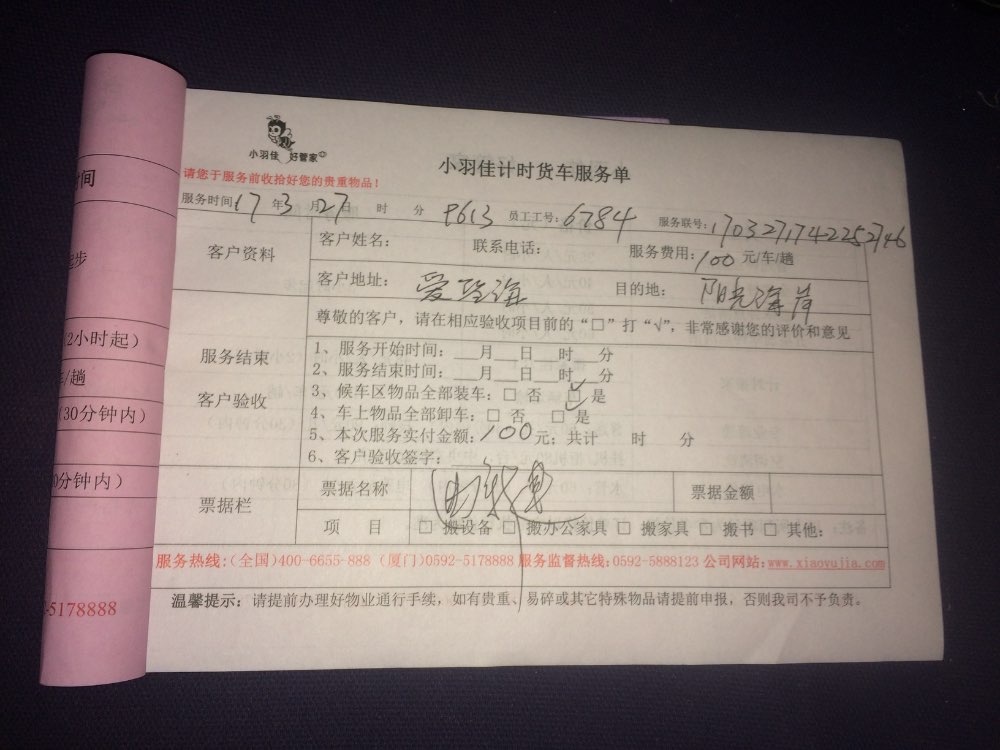 小羽佳 好管家
小羽佳计时货车服务单
请您于服务前收拾好您的贵重物品！
服务时间17年3月27日 时 分 P613 员工工号：6784 服务联号：1703271742252746
客户资料
客户姓名： 联系电话： 服务费用：100元/车/趟
客户地址： 目的地：阳光海岸
服务结束
客户验收
尊敬的客户，请在相应验收项目前的“□”打“√”，非常感谢您的评价和意见
1、服务开始时间：___月___日___时___分
2、服务结束时间：___月___日___时___分
3、候车区物品全部装车：□ 否 ☑ 是
4、车上物品全部卸车：□ 否 ☑ 是
5、本次服务实付金额：100元；共计 时 分
6、客户验收签字：
票据栏
票据名称 票据金额
项 目 □ 搬设备 □ 搬办公家具 □ 搬家具 □ 搬书 □ 其他：
服务热线：(全国)400-6655-888 (厦门)0592-5178888 服务监督热线：0592-5888123 公司网站：www.xiaoyujia.com
温馨提示：请提前办理好物业通行手续，如有贵重、易碎或其它特殊物品请提前申报，否则我司不予负责。
时间
起步
(2小时起)
车/趟
(30分钟内)
0分钟内)
2-5178888